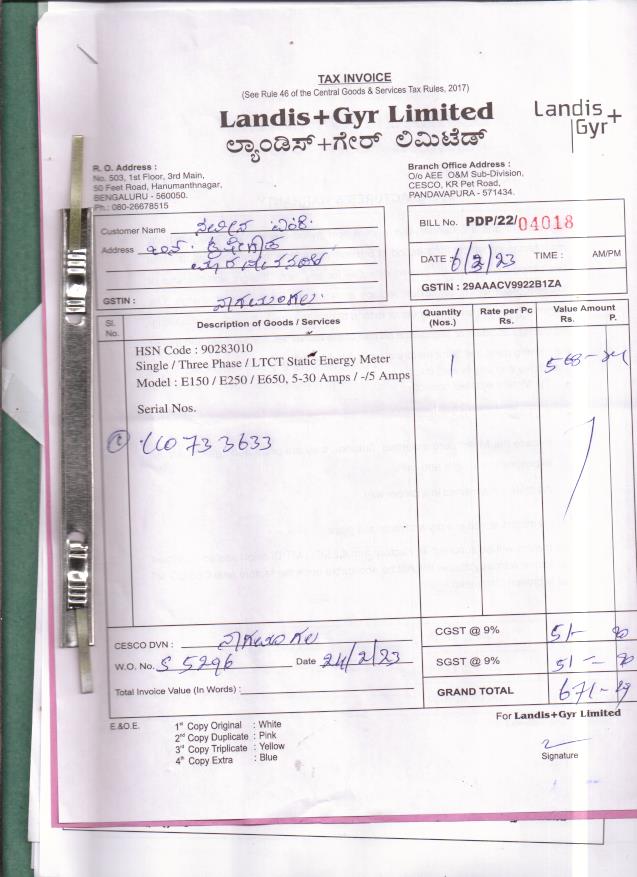 TAX INVOICE
(See Rule 46 of the Central Goods & Services Tax Rules, 2017)
Landis+Gyr Limited
ಲ್ಯಾಂಡಿಸ್+ಗೇರ್ ಲಿಮಿಟೆಡ್
Landis+
Gyr
R. O. Address :
No. 503, 1st Floor, 3rd Main,
50 Feet Road, Hanumanthnagar,
BENGALURU - 560050.
Ph.: 080-26678515
Branch Office Address :
O/o AEE O&M Sub-Division,
CESCO, KR Pet Road,
PANDAVAPURA - 571434.
Customer Name
Address
GSTIN :
BILL No. PDP/22/04018
DATE : 6/2/23 TIME : AM/PM
GSTIN : 29AAACV9922B1ZA
Sl. No. Description of Goods / Services Quantity (Nos.) Rate per Pc Rs. Value Amount Rs. P.
HSN Code : 90283010
Single / Three Phase / LTCT Static Energy Meter 1
Model : E150 / E250 / E650, 5-30 Amps / -/5 Amps
Serial Nos.
CESCO DVN :
CGST @ 9%
W.O. No. S 5296 Date 24/2/23
SGST @ 9%
Total Invoice Value (In Words) :
GRAND TOTAL
E.&O.E.
1st Copy Original : White
2nd Copy Duplicate : Pink
3rd Copy Triplicate : Yellow
4th Copy Extra : Blue
For Landis+Gyr Limited
Signature